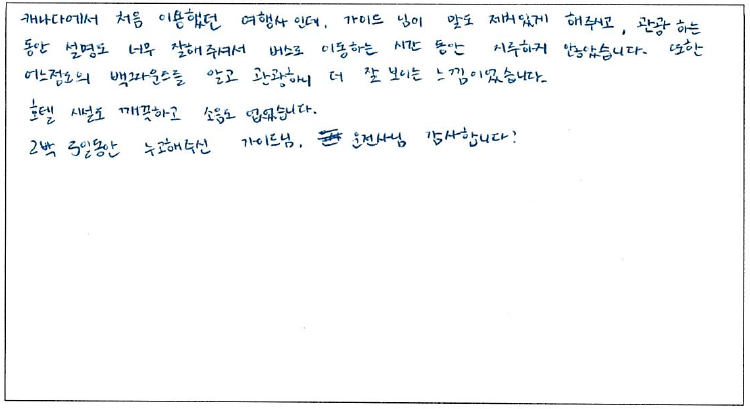 캐나다에서 처음 이용했던 여행사 인데, 가이드 님이 말도 재치있게 해주시고, 관광 하는
동안 설명도 너무 잘해주셔서 버스로 이동하는 시간 동안 지루하지 않았습니다. 또한
어느정도의 백그라운드를 알고 관광하니 더 잘 보이는 느낌이었습니다.
호텔 시설도 깨끗하고 소음도 없었습니다.
2박 3일동안 수고해주신 가이드님, 운전사님 감사합니다!